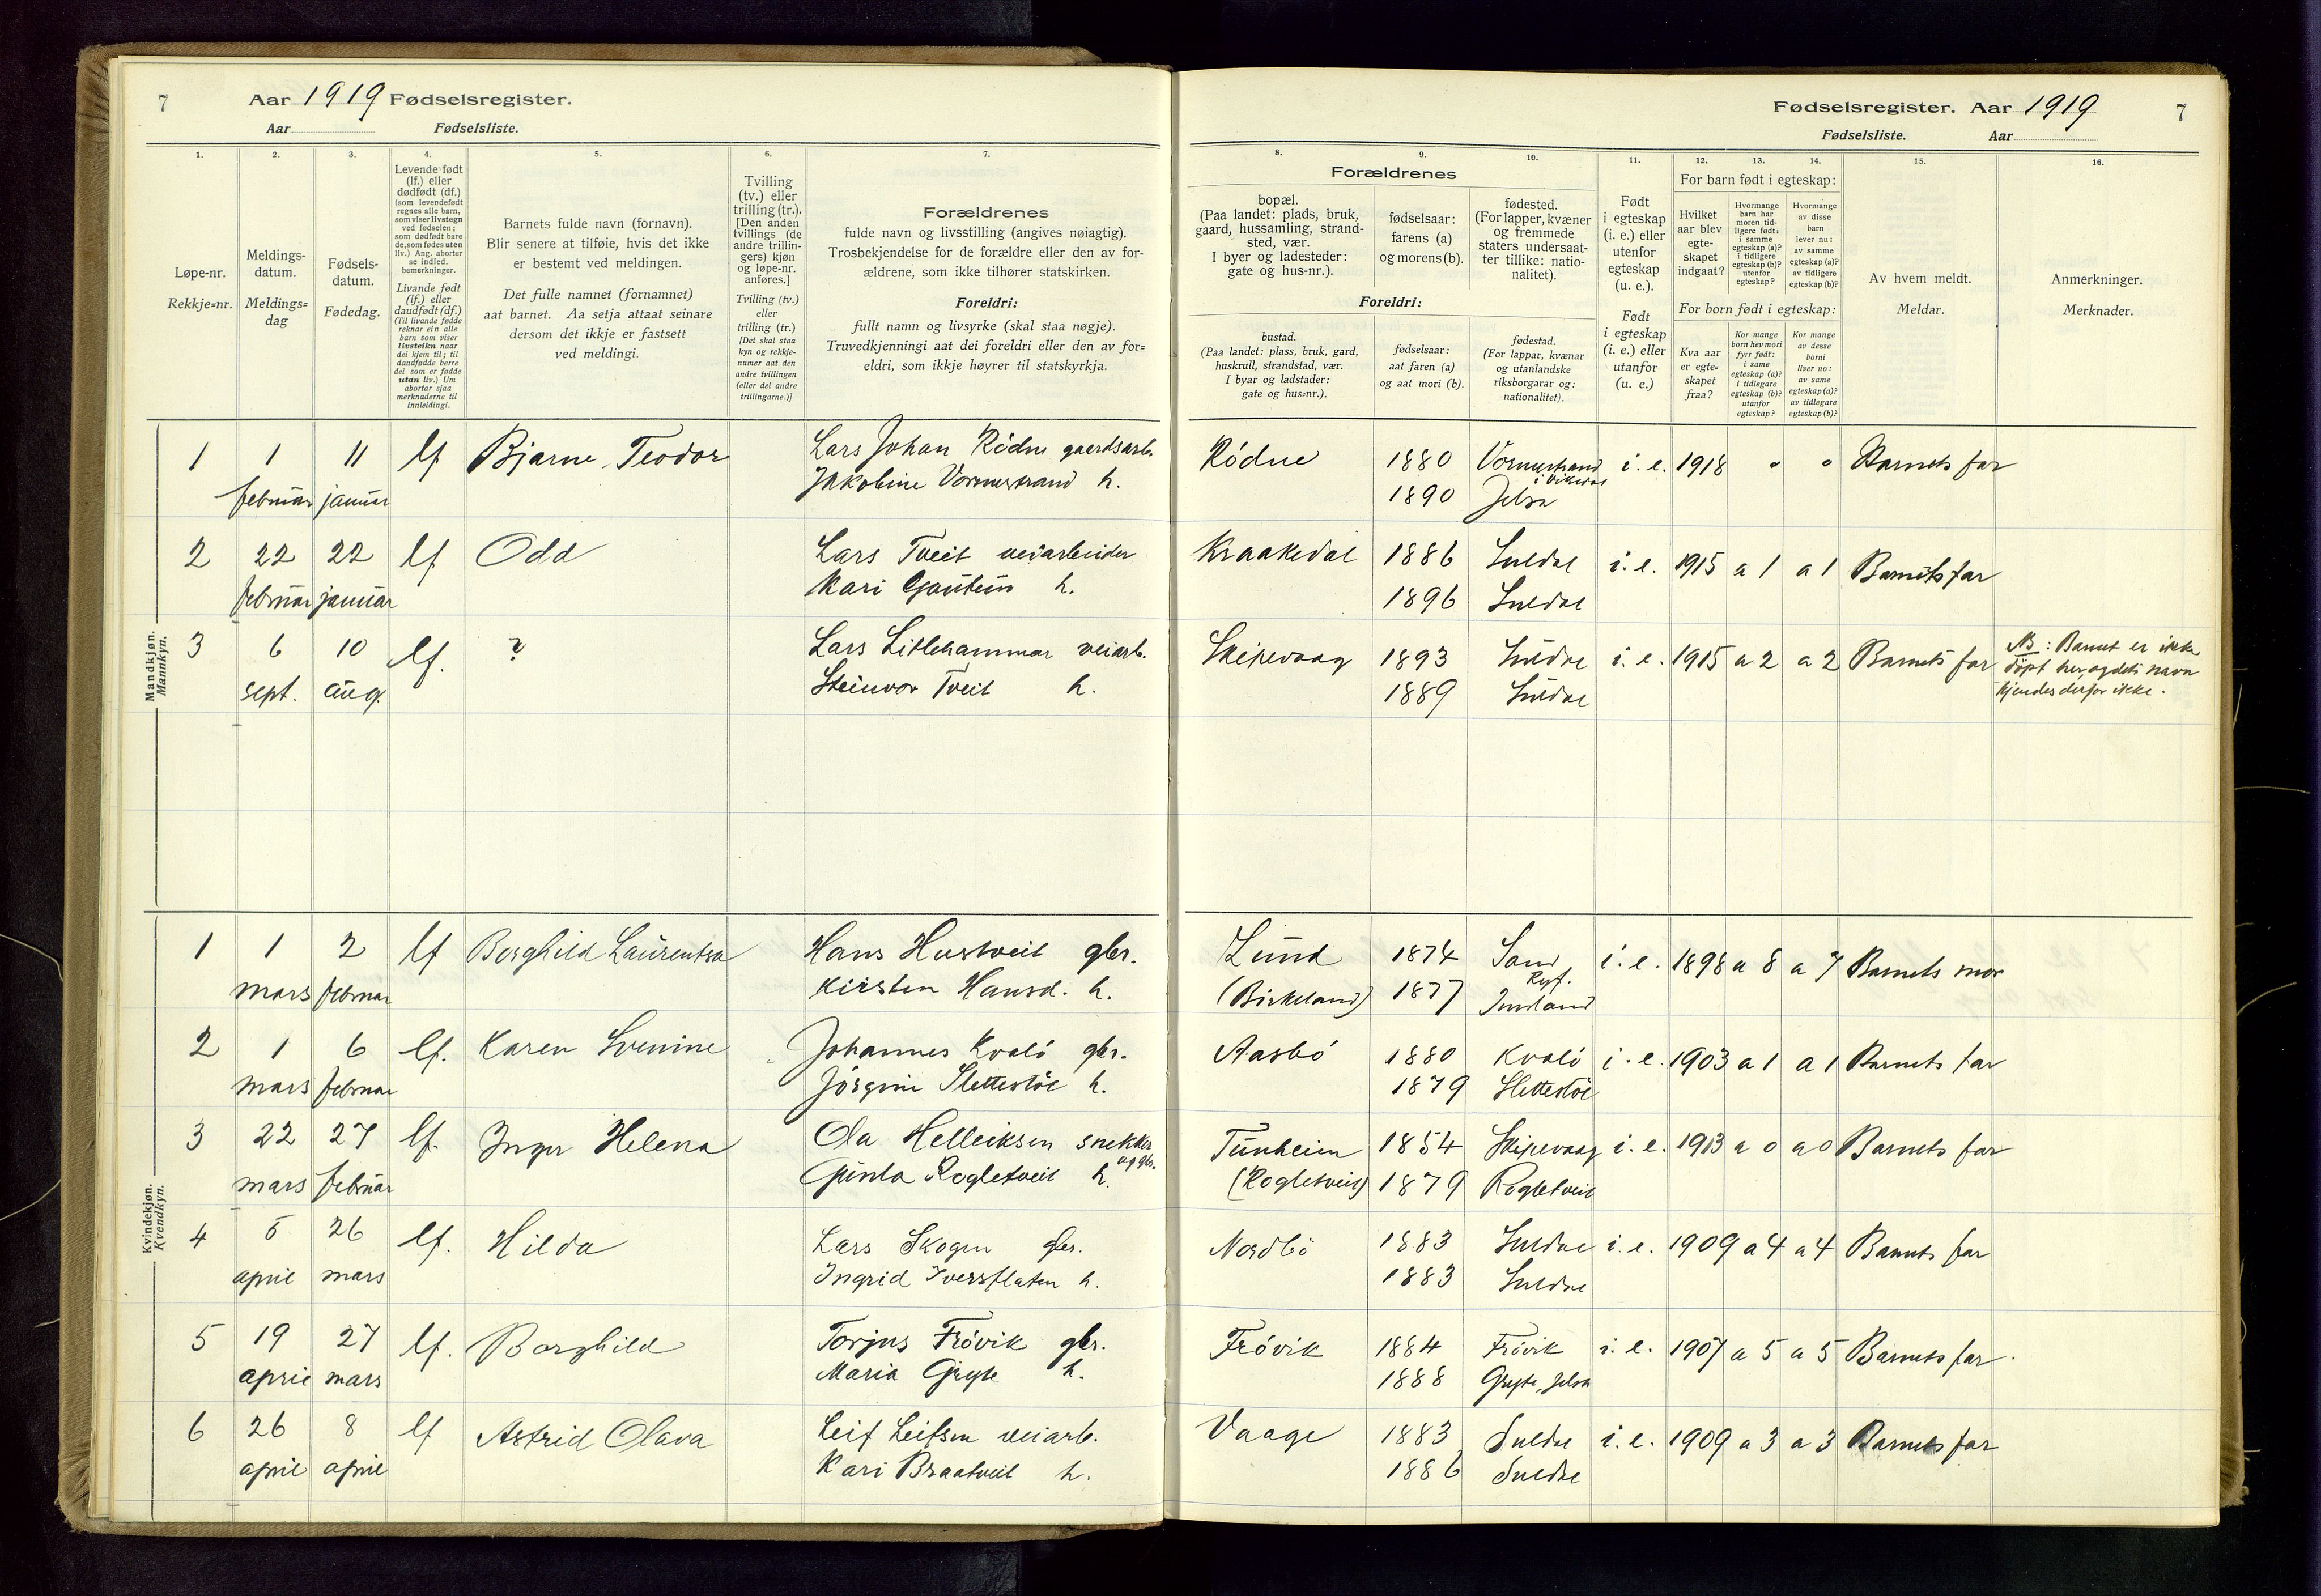 7 Aar 1919 Fødselsregister.
Aar Fødselsliste.
1. 2. 3. 4. 5. 6. 7.
Løpe-nr.
Rekkje-nr.
Meldings-
datum.
Meldings-
dag
Fødsels-
datum.
Fødedag.
Levende født
(lf.) eller
dødfødt (df.)
(som levendefødt
regnes alle barn,
som viser livstegn
ved fødselen;
som dødfødt bare
de, som fødes uten
liv.) Ang. aborter
se indled.
bemerkninger.
Livande født
(lf.) eller
daudfødt (df.)
(Til livande fødde
reknar ein alle
barn som viser
livsteikn naar
dei kjem til; til
daudfødde berre
dei som er fødde
utan liv.) Um
abortar sjaa
merknaderne til
innleidingi.
Barnets fulde navn (fornavn).
Blir senere at tilføie, hvis det ikke
er bestemt ved meldingen.
Det fulle namnet (fornamnet)
aat barnet. Aa setja attaat seinare
dersom det ikkje er fastsett
ved meldingi.
Tvilling
(tv.) eller
trilling (tr.).
[Den anden
tvillings (de
andre trillin-
gers) kjøn
og løpe-nr.
anføres.]
Tvilling (tv.)
eller
trilling (tr.)
[Det skal staa
kyn og rekkje-
numer aat den
andre tvillingen
(eller dei andre
trillingarne.)]
Forældrenes
fulde navn og livsstilling (angives nøiagtig).
Trosbekjendelse for de forældre eller den av for-
ældrene, som ikke tilhører statskirken.
Foreldri:
fullt namn og livsyrke (skal staa nøgje).
Truvedkjenningi aat dei foreldri eller den av for-
eldri, som ikkje høyrer til statskyrkja.
Mandkjøn.
Mannkyn.
1 1 11 lf Bjarne Teodor Lars Johan Rödne gaardsarb.
februar januar Jakobine Vormestrand h.
2 22 22 lf Odd Lars Tveit veiarbeider
februar januar Kari Gautun h.
3 6 10 lf. ? Lars Litlehammar veiarb.
sept. aug. Steinvor Tveit h.
Kvindekjøn.
Kvendkyn.
1 1 2 lf Borghild Laurentsa Hans Hustveit gbr.
mars februar Kirsten Hansd. h.
2 1 6 lf. Karen Svenine Johannes Kvalö gbr.
mars februar Jörgine Slettestöe h.
3 22 27 lf. Inger Helena Ola Helleiksen snekker
og gbr.
mars februar Gunla Rogletveit h.
4 5 26 lf. Hilda Lars Skogen gbr.
april mars Ingrid Iversflaten h.
5 19 27 lf. Borghild Torjus Frövik gbr.
april mars Maria Gryte h.
6 26 8 lf Astrid Olava Leif Leifsen veiarb.
april april Kari Braatveit h.
Fødselsregister. Aar 1919 7
Fødselsliste. Aar
8. 9. 10. 11. 12. 13. 14. 15. 16.
Forældrenes
bopæl.
(Paa landet: plads, bruk,
gaard, hussamling, strand-
sted, vær.
I byer og ladesteder:
gate og hus-nr.).
fødselsaar:
farens (a)
og morens (b).
fødested.
(For lapper, kvæner
og fremmede
staters undersaat-
ter tillike: natio-
nalitet).
Foreldri:
bustad.
(Paa landet: plass, bruk, gard,
huskrull, strandstad, vær.
I byar og ladstader:
gate og hus-nr.).
fødselsaar:
aat faren (a)
og aat mori (b).
fødestad.
(For lappar, kvænar
og utanlandske
riksborgarar og:
nationalitet).
Født
i egteskap
(i. e.) eller
utenfor
egteskap
(u. e.).
Født
i egteskap
(i. e.) eller
utanfor
(u. e.)
For barn født i egteskap:
Hvilket
aar blev
egte-
skapet
indgaat?
Hvormange
barn har
moren tid-
ligere født:
i samme
egteskap (a)?
i tidligere
egteskap (b)?
utenfor
egteskap?
Hvormange
av disse
barn
lever nu:
av samme
egteskap (a)?
av tidligere
egteskap (b)?
For born født i egteskap:
Kva aar
er egte-
skapet
fraa?
Kor mange
born hev mori
fyrr født:
i same
egteskap (a)?
i tidlegare
egteskap (b)?
utanfor
egteskap?
Kor mange
av desse
borni
liver no:
av same
egteskap (a)?
av tidlegare
egteskap (b)?
Av hvem meldt.
Meldar.
Anmerkninger.
Merknader.
Rödne 1880 Vormestrand i. e. 1918 o o Barnets far
i Vikedal
1890 Jelsa
Kraakedal 1886 Suldal i. e. 1915 a 1 a 1 Barnets far
1896 Suldal
Skipevaag 1893 Suldal i. e. 1915 a 2 a 2 Barnets far NB: Barnet er ikke
döpt her, og dets navn
1889 Suldal kjendes derfor ikke.
Lund 1874 Sand i. e. 1898 a 8 a 7 Barnets mor
Ryf.
(Birkeland) 1877 Imsland
Aasbö 1880 Kvalö i. e. 1903 a 1 a 1 Barnets far
1879 Slettestöe
Tunheim 1854 Skipevaag i. e. 1913 a 0 a 0 Barnets far
(Rogletveit) 1879 Rogletveit
Nordbö 1883 Suldal i. e. 1909 a 4 a 4 Barnets far
1883 Suldal
Frövik 1884 Frövik i. e. 1907 a 5 a 5 Barnets far.
1888 Gryte, Jelsa
Vaage 1883 Suldal i. e. 1909 a 3 a 3 Barnets far
1886 Suldal